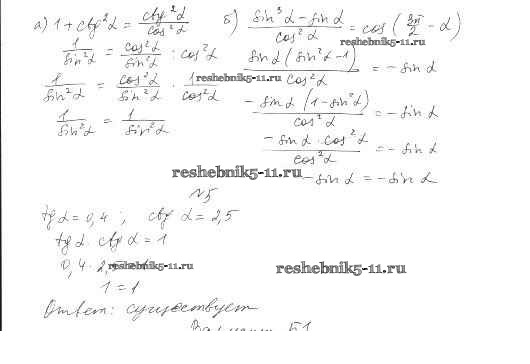 а) 1 + ctg²α = ctg²α / cos²α
1 / sin²α = cos²α / sin²α : cos²α
1 / sin²α = cos²α / sin²α · 1 / cos²α
1 / sin²α = 1 / sin²α
б) (sin³α - sin α) / cos²α = cos (3π/2 - α)
reshebnik5-11.ru
sin α (sin²α - 1) / cos²α = - sin α
reshebnik5-11.ru
- sin α (1 - sin²α) / cos²α = - sin α
- sin α · cos²α / cos²α = - sin α
- sin α = - sin α
reshebnik5-11.ru
№5
tg α = 0,4 ; ctg α = 2,5
tg α · ctg α = 1
0,4 · 2,5 = 1
reshebnik5-11.ru
reshebnik5-11.ru
1 = 1
Ответ: существует
Вариант Б1